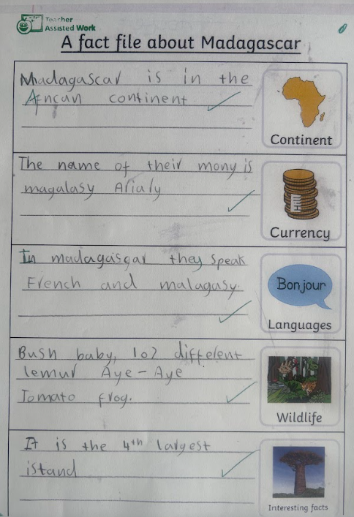 Teacher
Assisted Work
A fact file about Madagascar
Madagascar is in the
African continent
Continent
The name of their mony is
magalasy Ariary
Currency
In madagascar they speak
French and malagasy
Bonjour
Languages
Bush baby, 102 different
lemur Aye-Aye
Tomato frog.
Wildlife
It is the 4th largest
island
Interesting facts